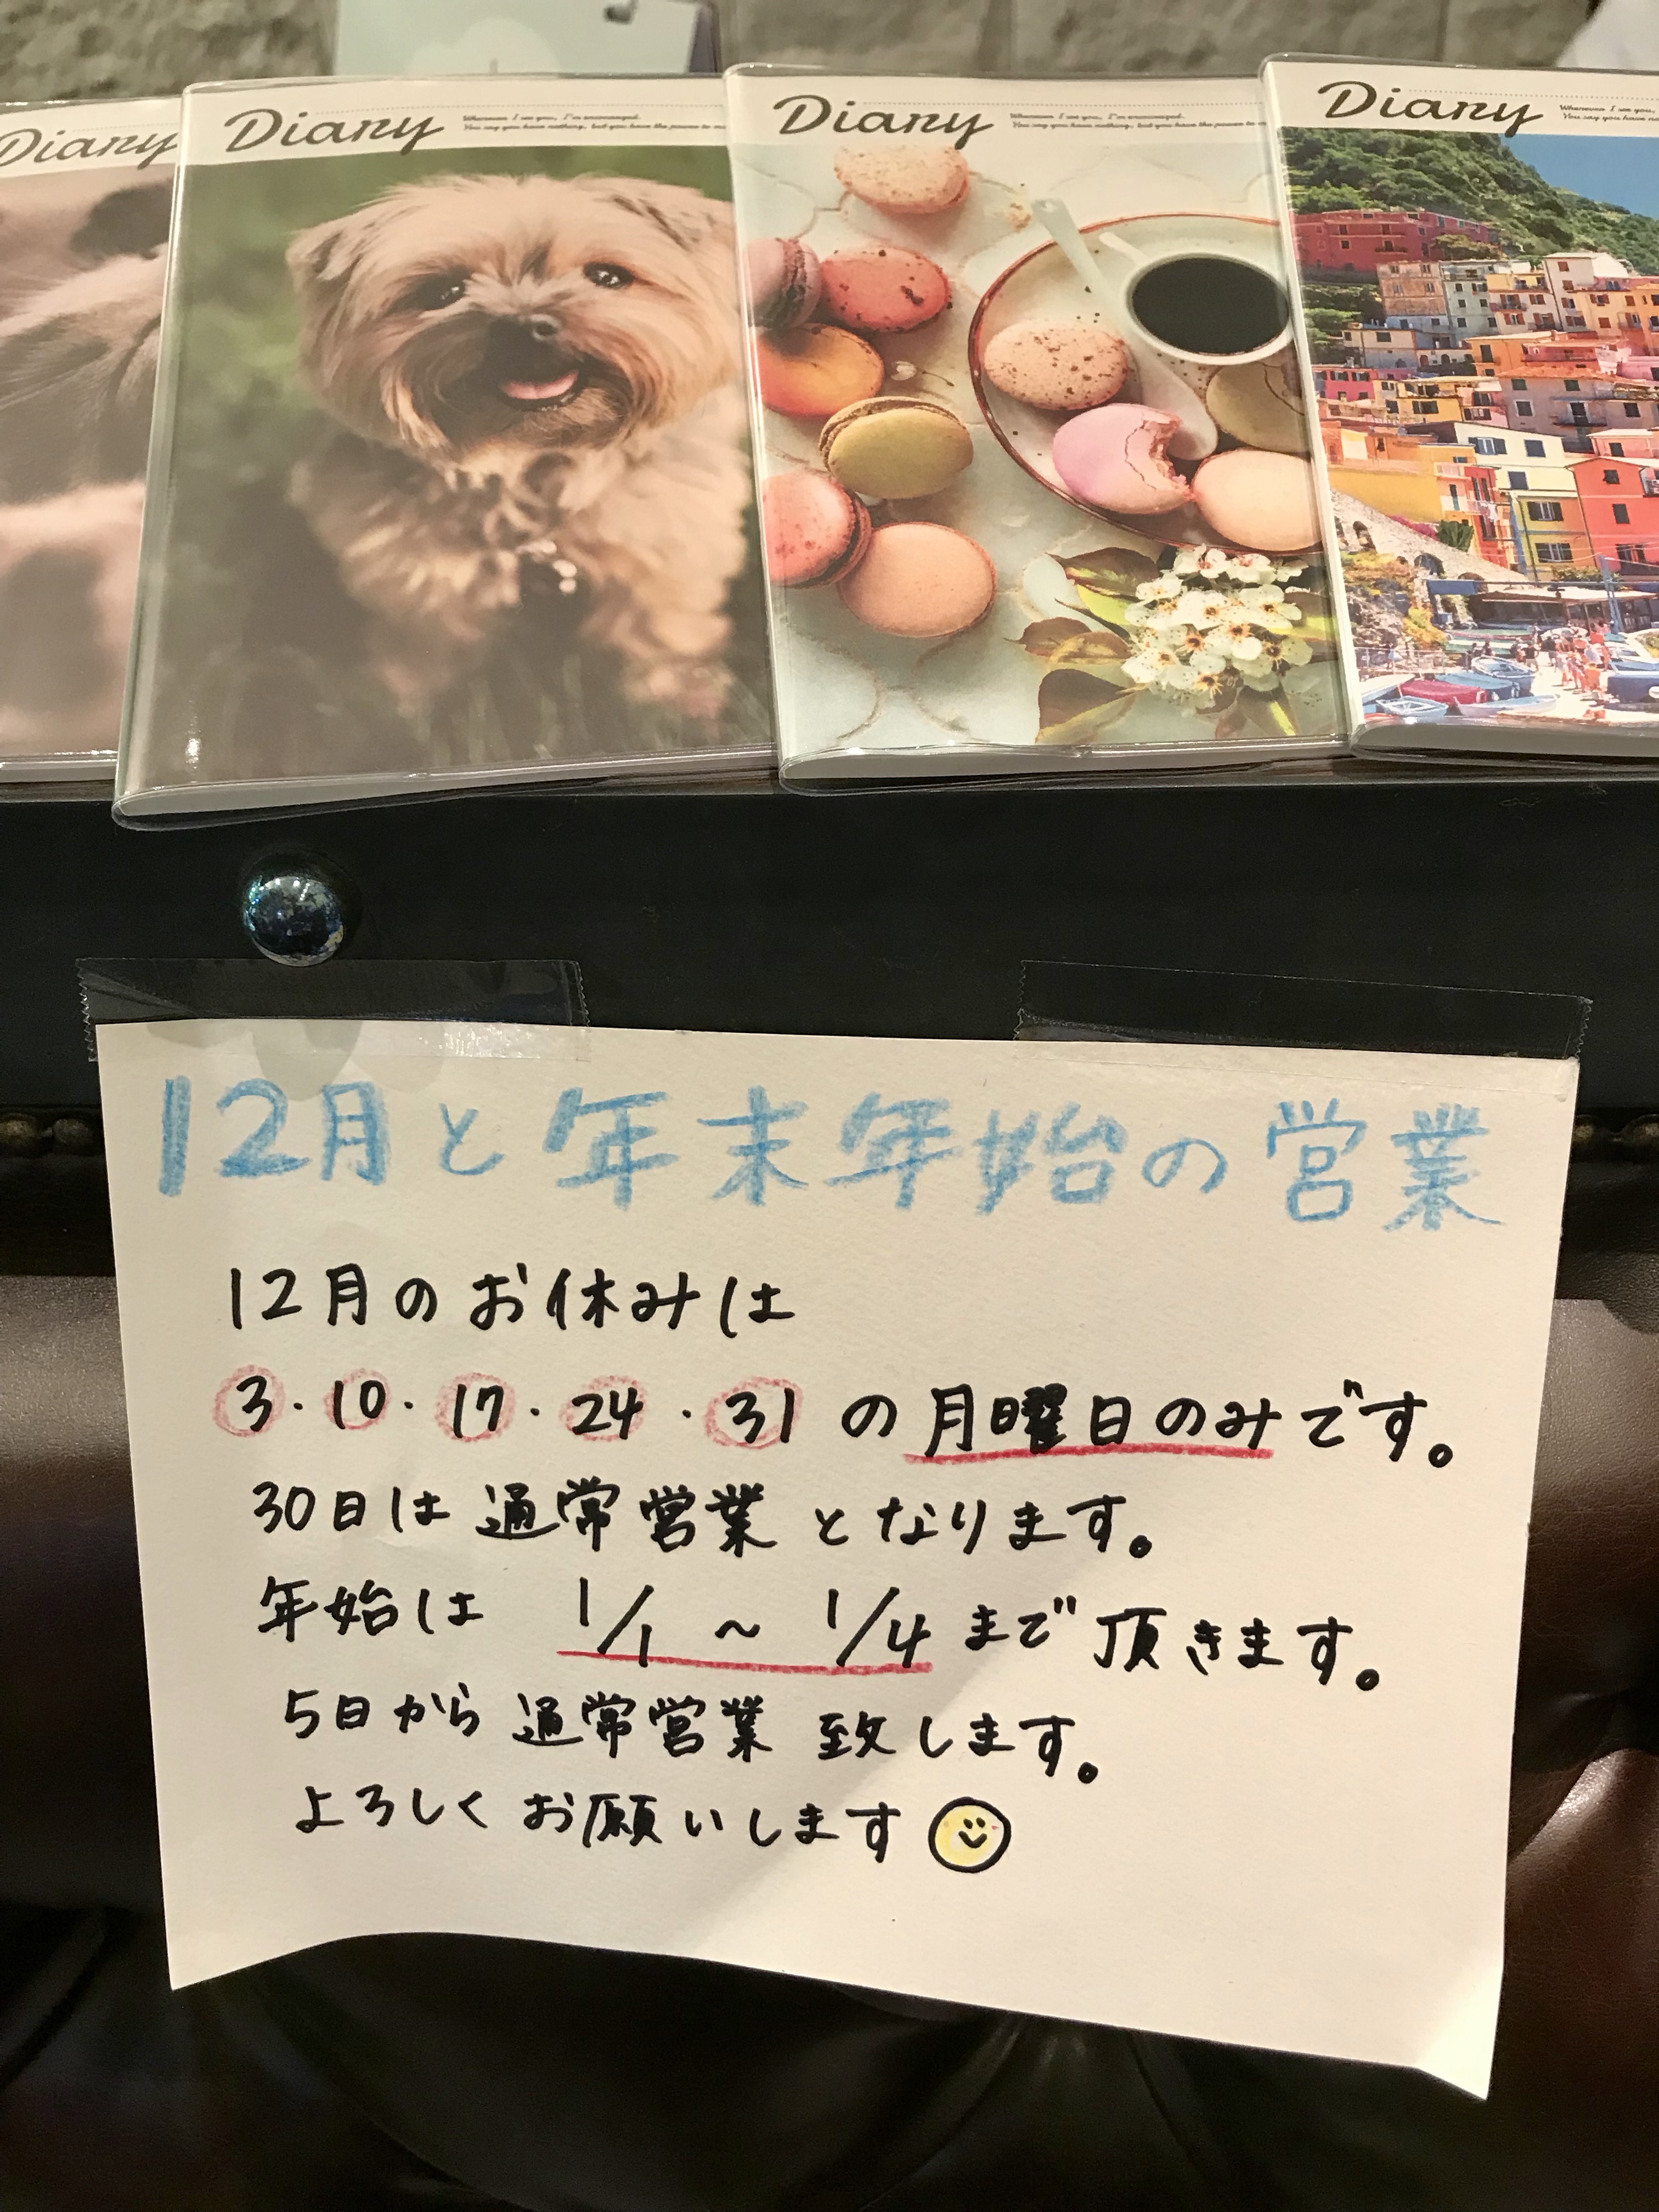 Diary
Diary
Wherever I see you, I'm encouraged.
You say you have nothing, but you have the power to
Diary
Wherever I see you, I'm encouraged.
You say you have nothing, but you have the power to
Diary
Wherever I see you,
You say you have
12月と年末年始の営業
12月のお休みは
3・10・17・24・31の月曜日のみです。
30日は通常営業となります。
年始は 1/1 〜 1/4 まで頂きます。
5日から通常営業致します。
よろしくお願いします